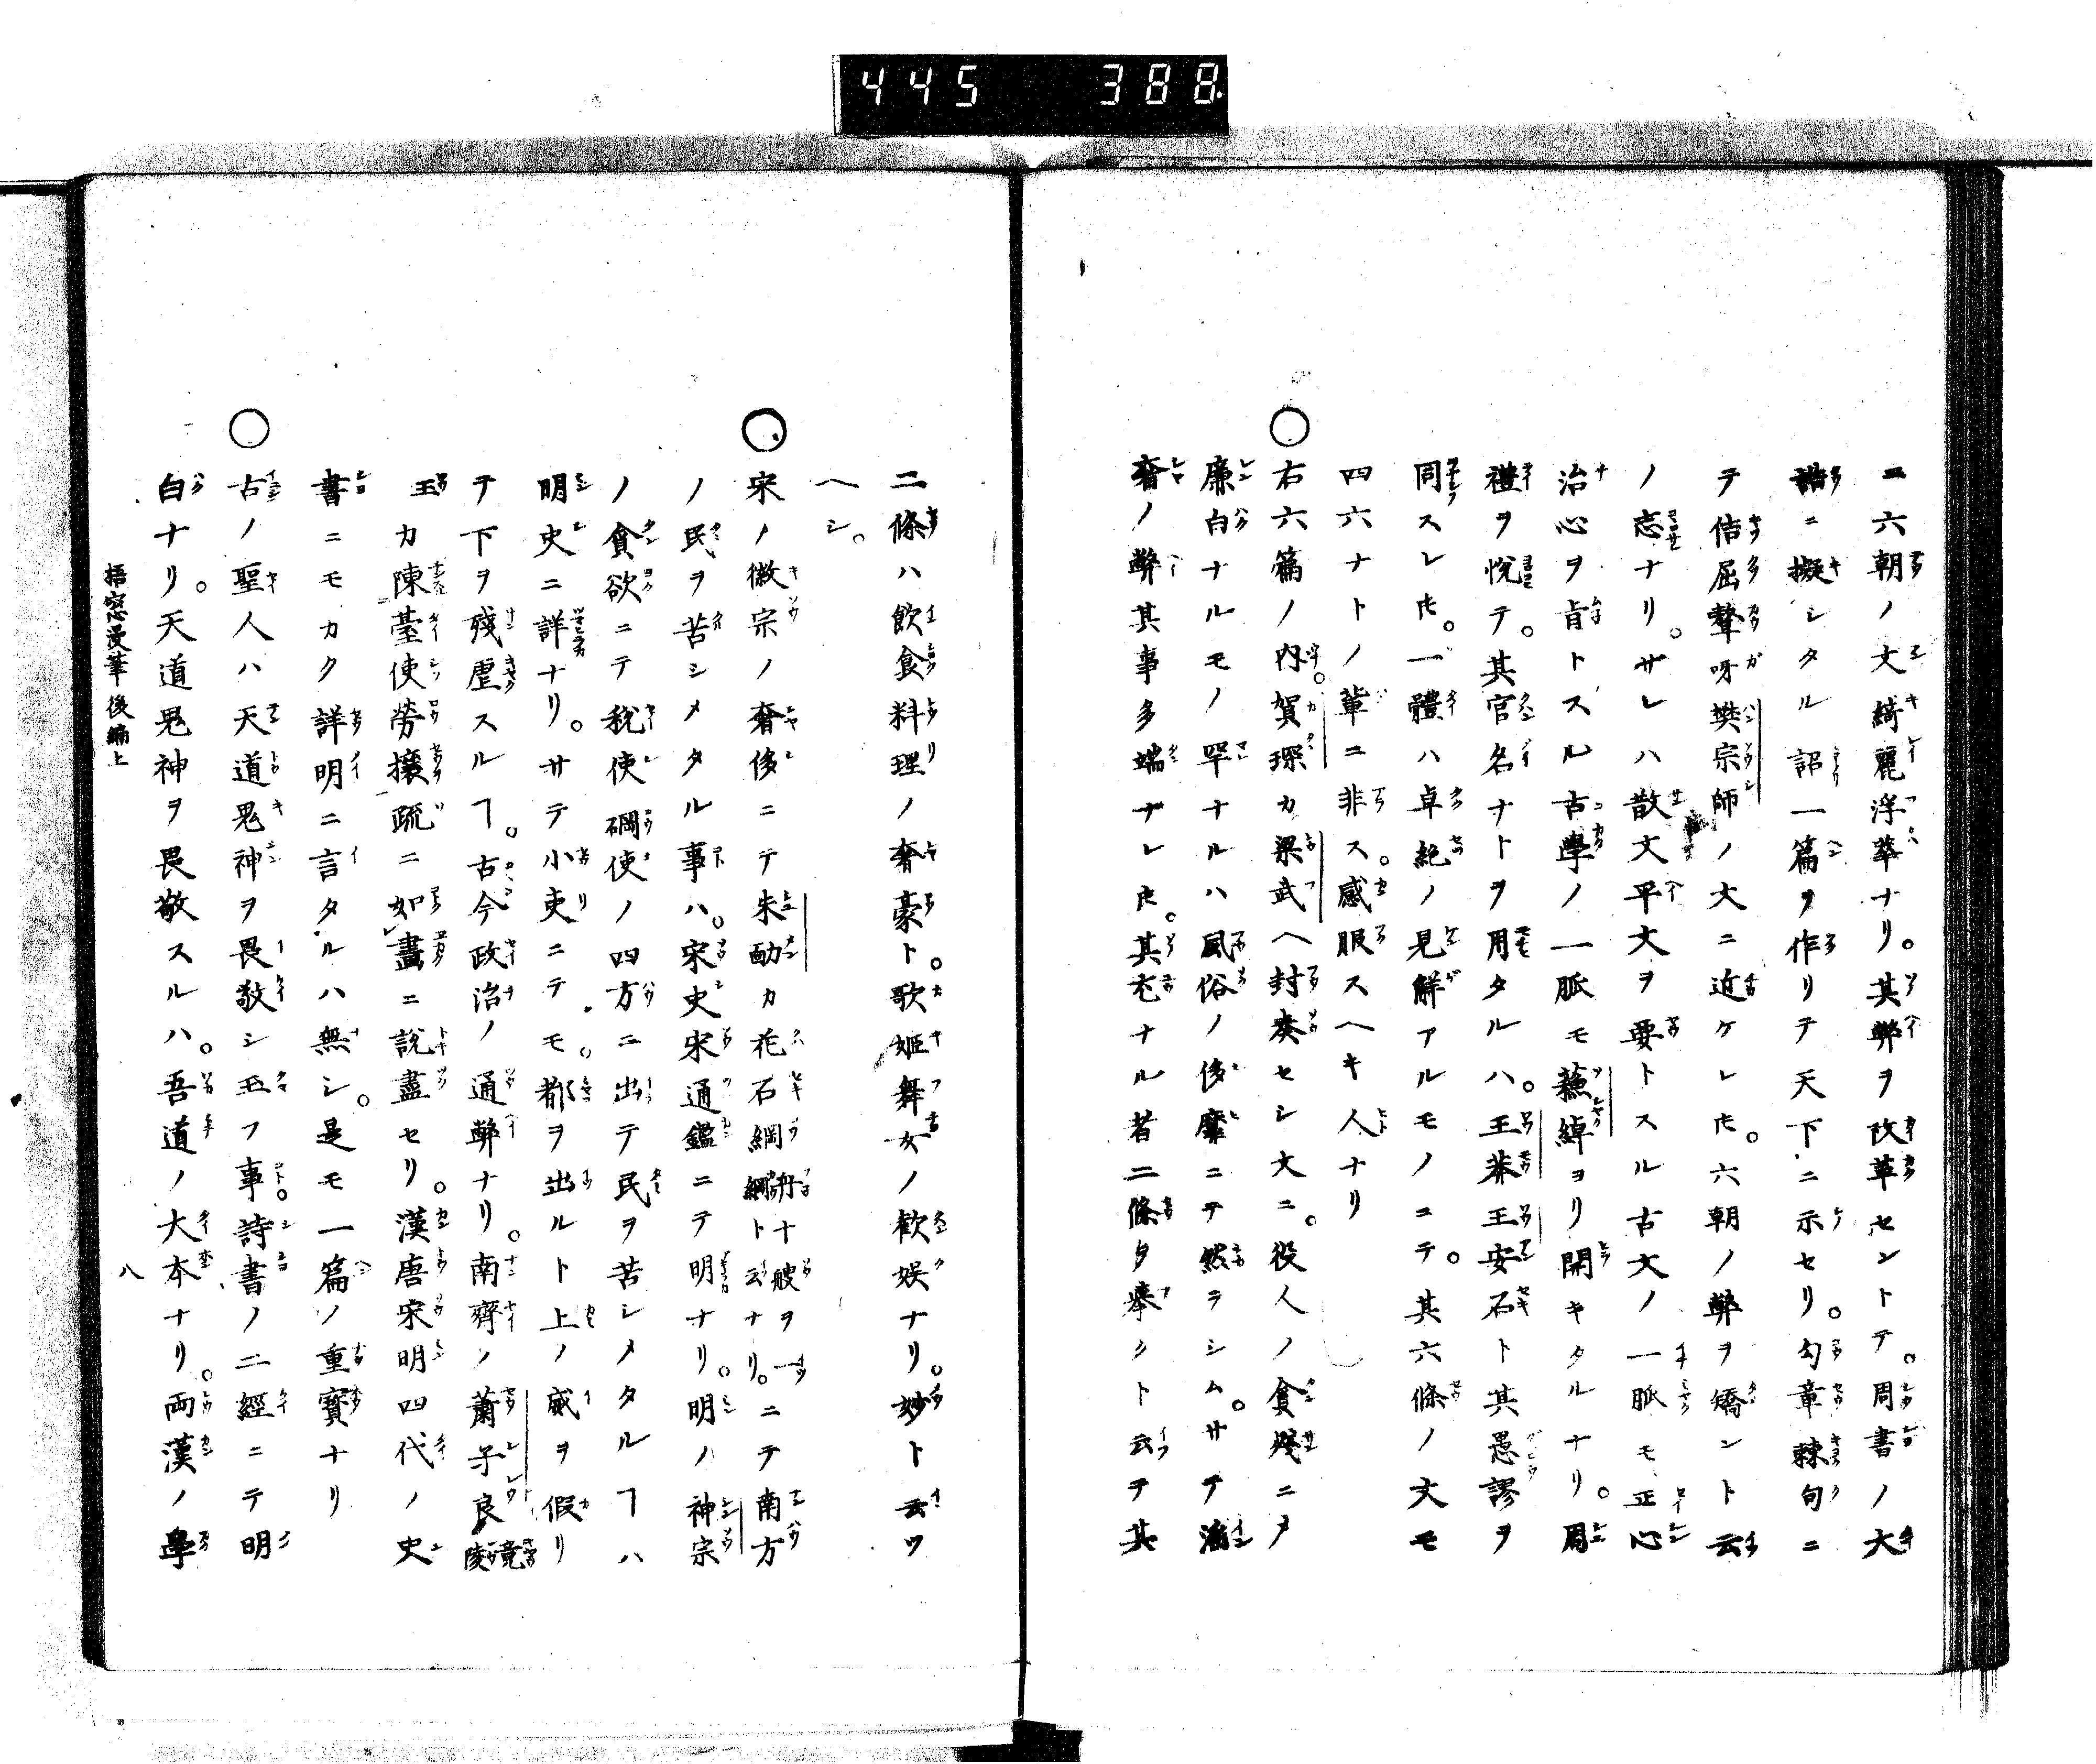 445 388
ニ六朝ノ文綺麗浮華ナリ。其弊ヲ改革セントテ。周書ノ大
誥ニ擬シタル詔一篇ヲ作リテ天下ニ示セリ。勾章棘句ニ
テ佶屈聱呀樊宗師ノ大ニ近ケレ𪜈。六朝ノ弊ヲ矯ント云
ノ志ナリ。サレハ散文平文ヲ要トスル古文ノ一脈モ正心
治心ヲ肯トスル古學ノ一脈モ蘇綽ヨリ開キタルナリ。周
禮ヲ悅テ。其官名ナトヲ用タルハ。王莽王安石ト其愚謬ヲ
同スレ𪜈。一體ハ卓絶ノ見解アルモノニテ。其六條ノ文モ
四六ナトノ軰ニ非ス。感服スヘキ人ナリ
○右六篇ノ内。賀琛カ梁武ヘ封奏セシ文ニ。役人ノ貪殘ニメ
廉白ナルモノヽ罕ナルハ風俗ノ侈靡ニテ然ラシム。サテ淫
奢ノ弊其事多端ナレ𪜈。其尤ナル者二條タ擧クト云テ其
二條ハ飲食料理ノ奢豪ト。歌姬舞女ノ歡娱ナリ。妙ト云ツ
ヘシ。
○宋ノ徽宗ノ奢侈ニテ朱勔カ花石綱綱舟十艘ヲ一綱ト云ナリ。ニテ南方
ノ民ヲ苦シメタル事ハ。宋史宋通鑑ニテ明ナリ。明ノ神宗
ノ貪欲ニテ税使礦使ノ四方ニ出テ民ヲ苦シメタルヿハ
明史ニ詳ナリ。サテ小吏ニテモ。都ヲ出ルト上ノ威ヲ假リ
テ下ヲ殘虐スルヿ。古今政治ノ通弊ナリ。南齊ノ蕭子良竟陵
王カ陳臺使勞攘疏ニ如畵ニ說盡セリ。漢唐宋明四代ノ史
書ニモカク詳明ニ言タルハ無シ。是モ一篇ノ重寶ナリ
○古ノ聖人ハ天道鬼神ヲ畏敬シ玉フ事。詩書ノ二經ニテ明
白ナリ。天道鬼神ヲ畏敬スルハ。吾道ノ大本ナリ。両漢ノ學
梧窓漫筆後編上
八